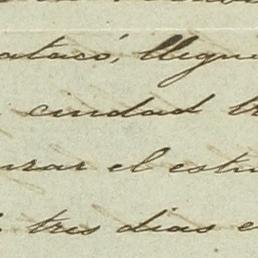 atacó, llegu
ciudad
el estu
tres dias e